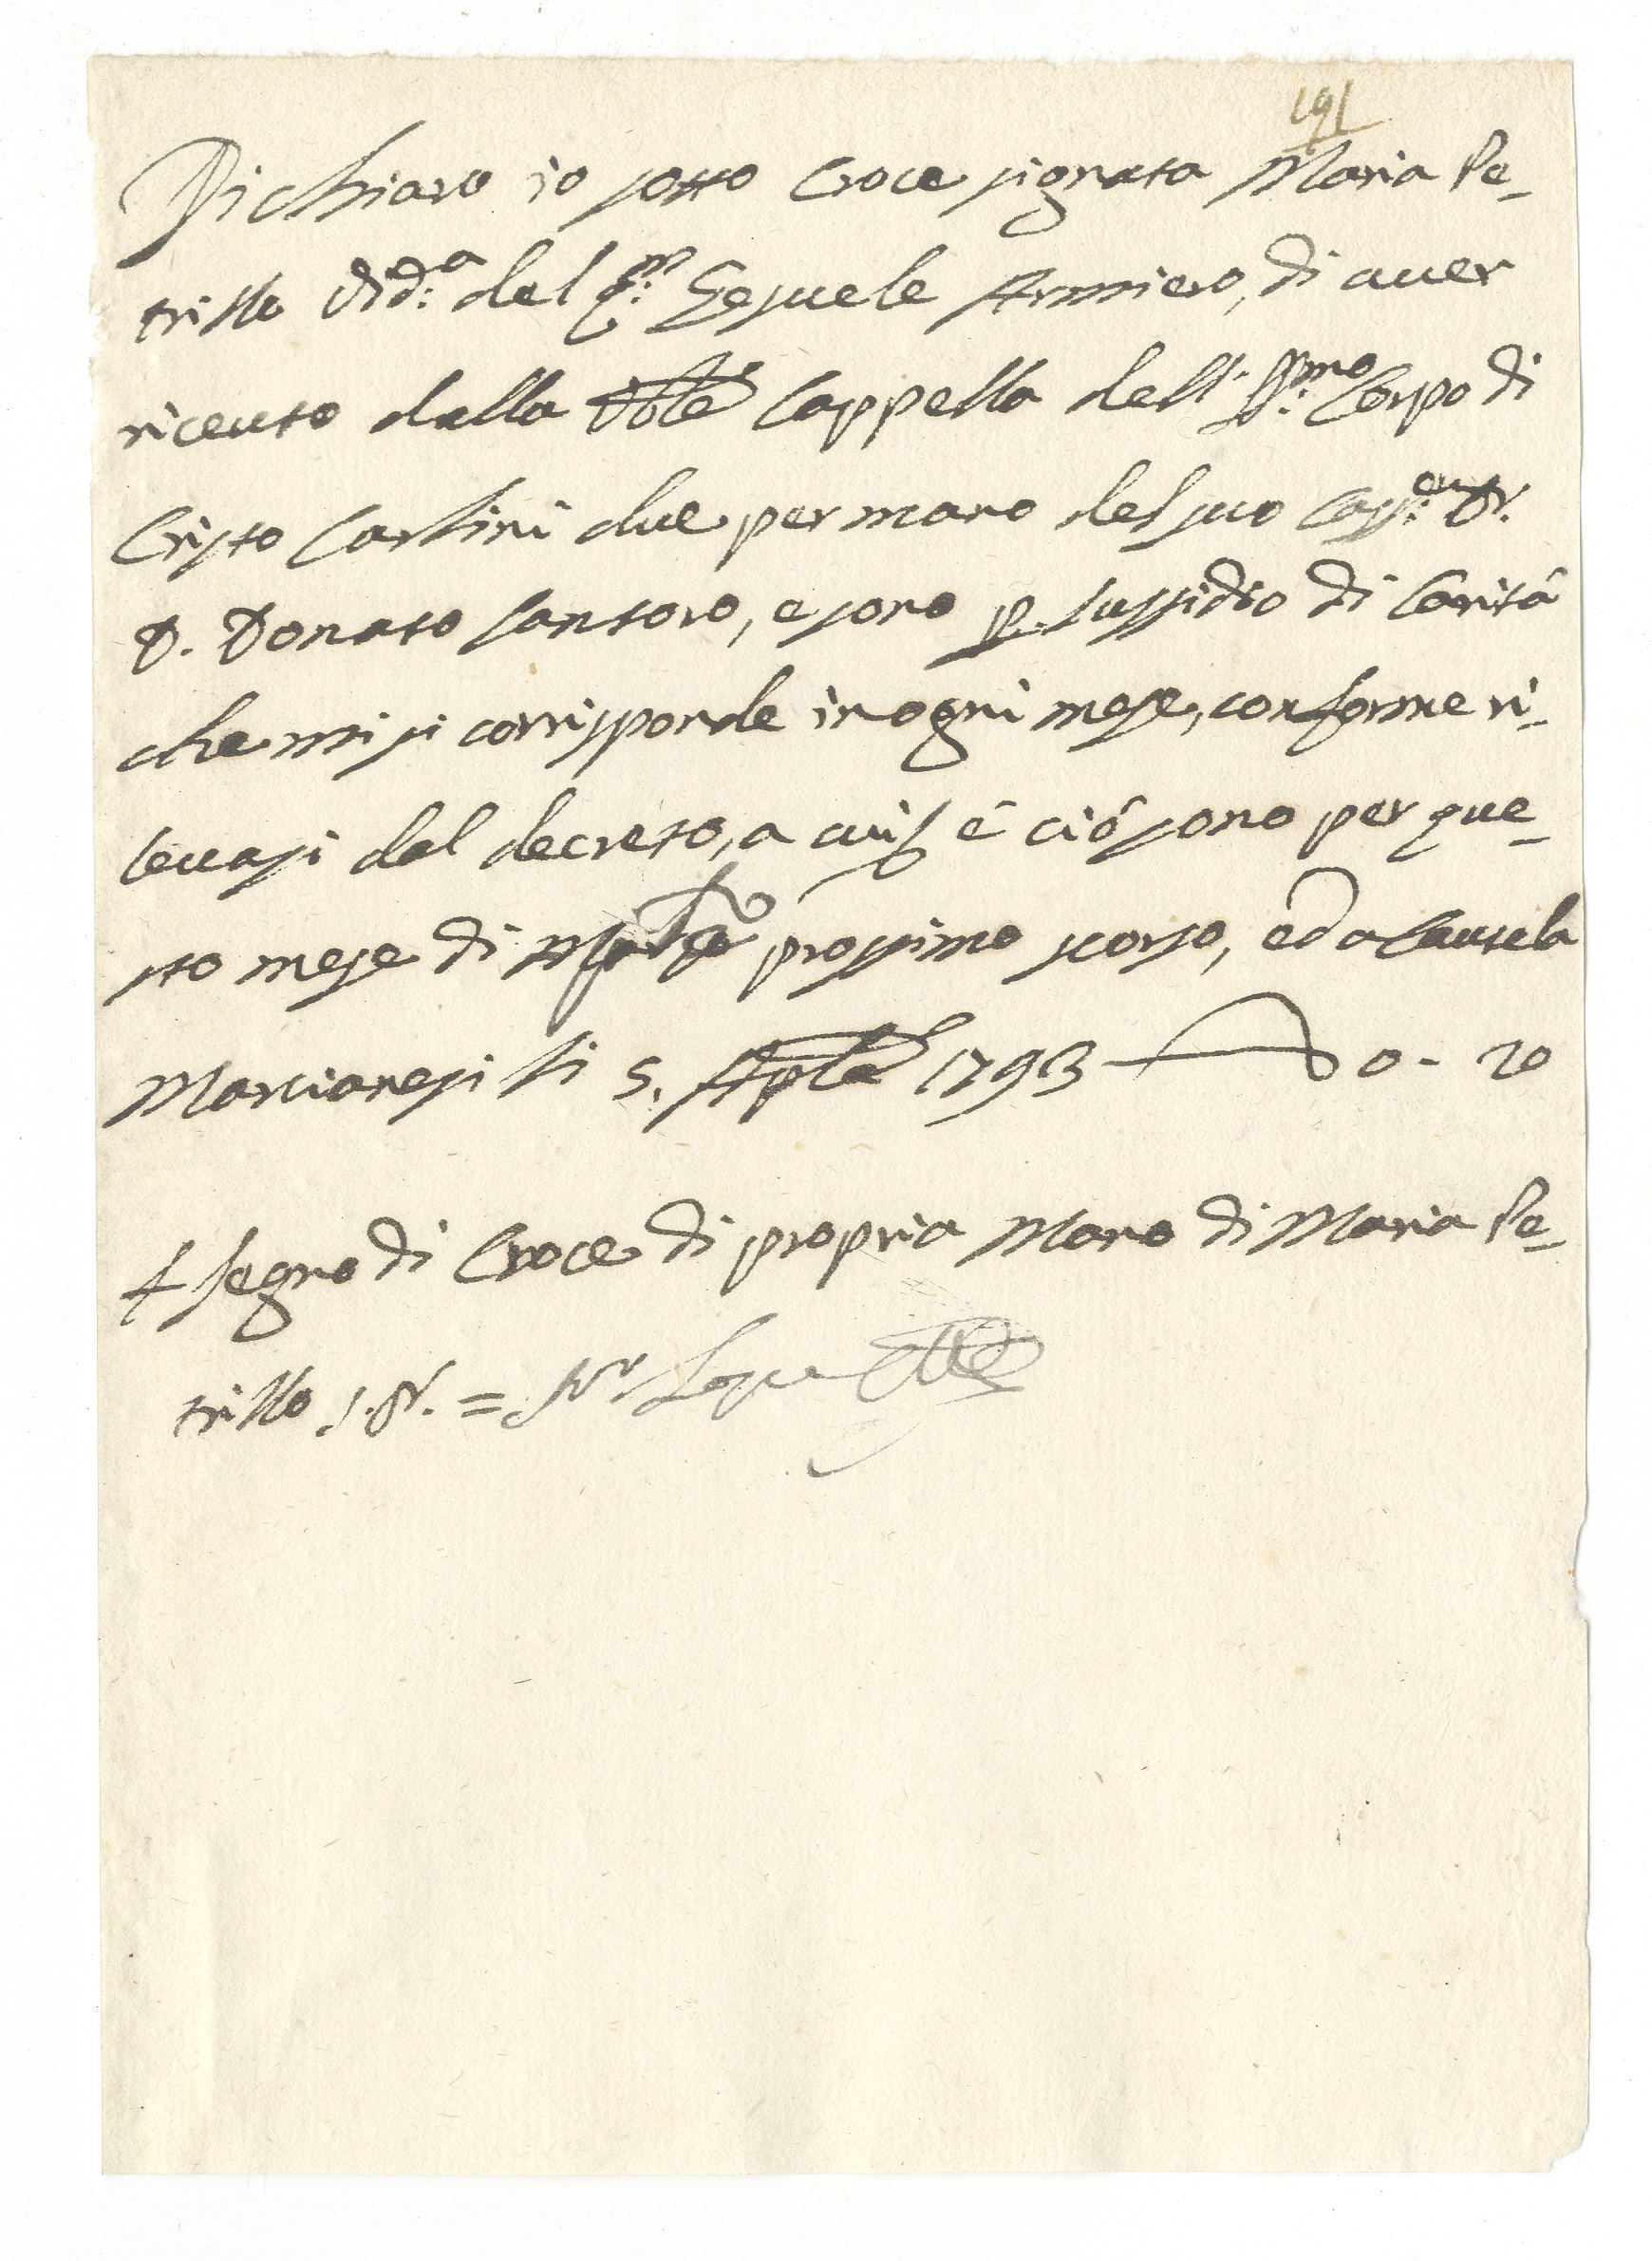 191
Dichiaro io sotto Croce signata Maria Pe-
trillo Vid:a del q:m Gesuele Armiero, di aver
riceuto dalla Vble Cappella dell' SS:mo Corpo di
Cristo Carlini due per mano del suo Cass:re Dr.
D. Donato Santoro, e sono p sussidio di Carità
che mi si corrisponde in ogni mese, conforme ri-
levasi dal decreto, a cui e ciò sono per que-
sto mese di prossimo scorso, ed a Cautela
Marcianesi li 5. Aple 1793 0 - 20
+ Segno di Croce di propria Mano di Maria Pe-
trillo